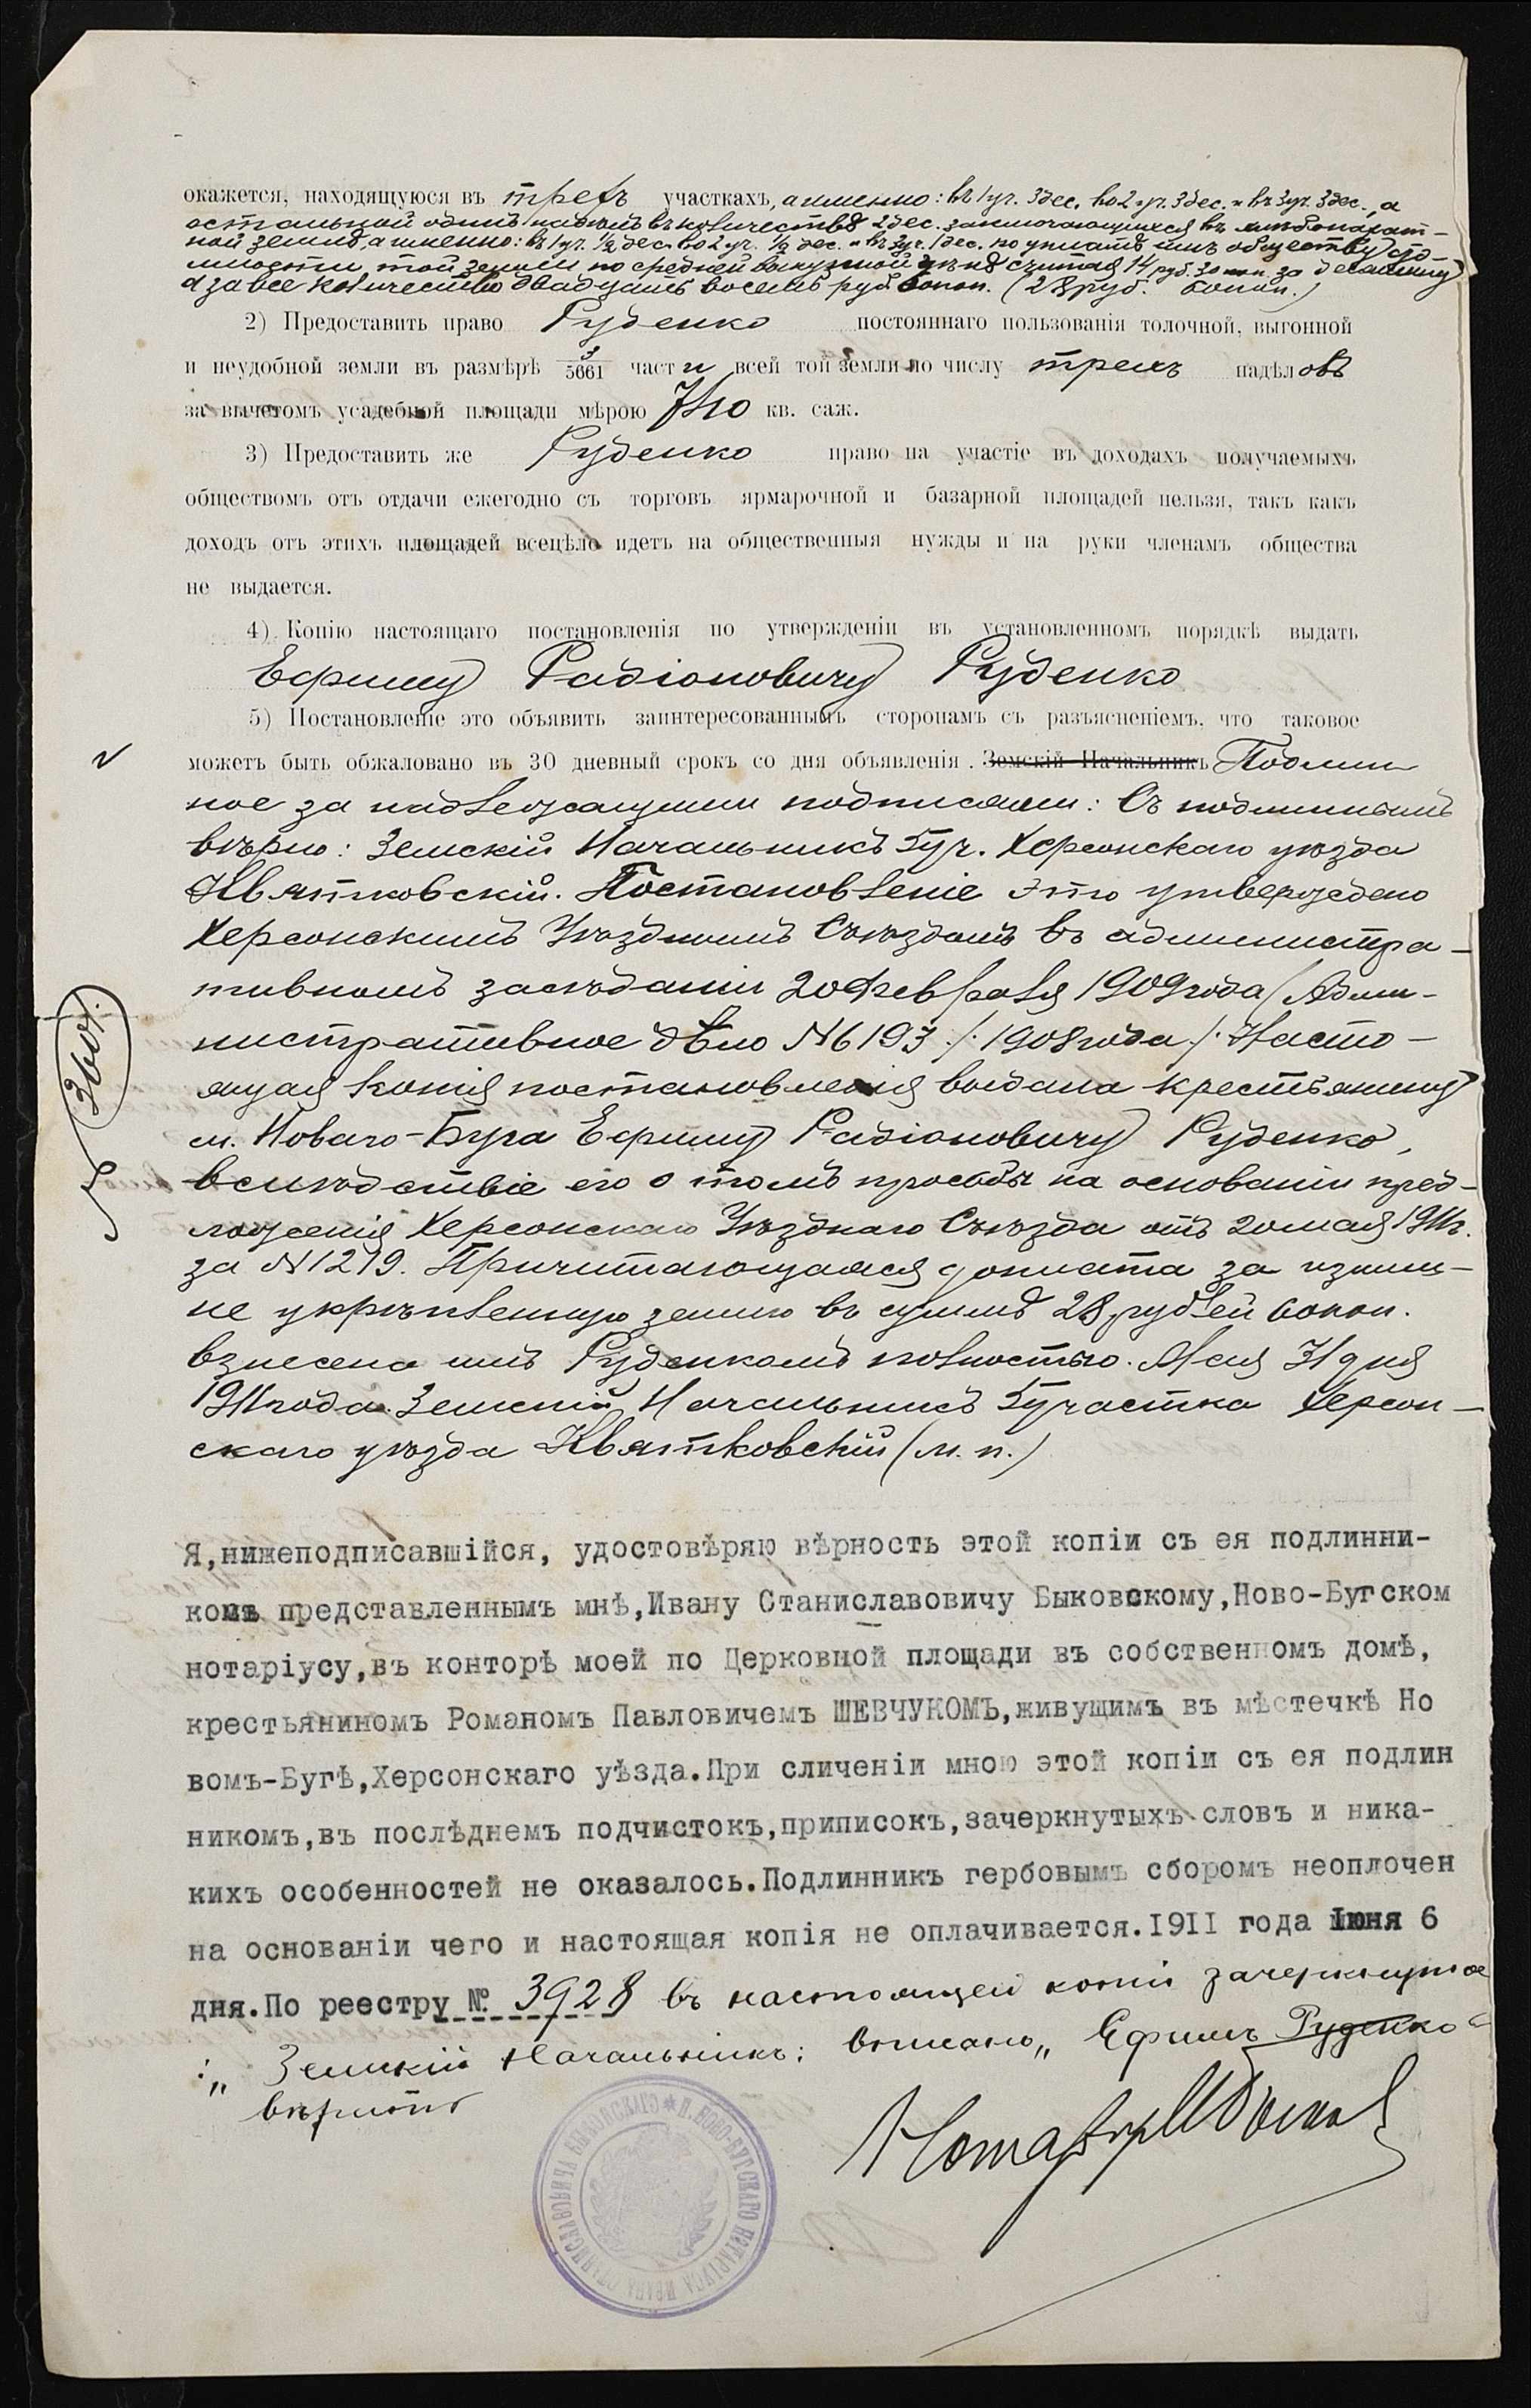 окажется, находящуюся въ трехъ участкахъ, а именно: въ 1 уч. 3 дес. во 2 уч. 3 дес. и въ 3 уч. 3 дес., а
остальной одинъ надѣлъ въ количествѣ 2 дес. заключающихся въ
ной землѣ, а именно: въ 1 уч. ½ дес. во 2 уч. ½ дес. и въ 3 уч. 1 дес. по уплатѣ имъ обществу сто-
имости той земли по средней выкупной цѣнѣ считая 14 руб. 30 коп. за десятину
а за все количество двадцать восемь руб. 60 коп. (28 руб. 60 коп.)
2) Предоставить право Руденко постояннаго пользованія толочной, выгонной
и неудобной земли въ размѣрѣ 3/5661 части всей той земли по числу трехъ надѣловъ
за вычетомъ усадебной площади мѣрою 740 кв. саж.
3) Предоставить же Руденко право на участіе въ доходахъ получаемыхъ
обществомъ отъ отдачи ежегодно съ торговъ ярмарочной и базарной площадей нельзя, такъ какъ
доходъ отъ этихъ площадей всецѣло идетъ на общественныя нужды и на руки членамъ общества
не выдается.
4) Копію настоящаго постановленія по утвержденіи въ установленномъ порядкѣ выдать
Ефиму Радіоновичу Руденко
5) Постановленіе это объявить заинтересованнымъ сторонамъ съ разъясненіемъ, что таковое
можетъ быть обжаловано въ 30 дневный срокъ со дня объявленія. Земскій Начальникъ Подлин
ное за надлежащими подписями: Съ подлиннымъ
вѣрно: Земскій Начальникъ 5 уч. Херсонскаго уѣзда
Квятковскій. Постановленіе это утверждено
Херсонскимъ Уѣзднымъ Съѣздомъ въ администра-
тивномъ засѣданіи 20 февраля 1909 года (Адми-
нистративное дѣло № 6193 /: 1908 года /: Насто-
ящая копія постановленія выдана крестьянину
м. Новаго-Буга Ефиму Радіоновичу Руденко,
вслѣдствіе его о томъ просьбы на основаніи пред-
ложенія Херсонскаго Уѣзднаго Съѣзда отъ 20 мая 1911 г.
за № 1219. Причитающаяся доплата за излиш-
не укрѣпленную землю въ суммѣ 28 рублей 60 коп.
взнесена имъ Руденкомъ полностью. Мая 31 дня
1911 года. Земскій Начальникъ 5 участка Херсон-
скаго уѣзда Квятковскій (м. п.)
Я,нижеподписавшійся, удостовѣряю вѣрность этой копіи съ ея подлинни-
комъ представленнымъ мнѣ,Ивану Станиславовичу Быковскому,Ново-Бугском
нотаріусу,въ конторѣ моей по Церковной площади въ собственномъ домѣ,
крестьяниномъ Романомъ Павловичемъ ШЕВЧУКОМЪ,живущимъ въ мѣстечкѣ Но
вомъ-Бугѣ,Херсонскаго уѣзда.При сличеніи мною этой копіи съ ея подлин
никомъ,въ послѣднемъ подчистокъ,приписокъ,зачеркнутыхъ словъ и ника-
кихъ особенностей не оказалось.Подлинникъ гербовымъ сборомъ неоплочен
на основаніи чего и настоящая копія не оплачивается.1911 года Іюня 6
дня.По реестру № 3928 въ настоящей копіи зачеркнутое
:„ Земскій Начальникъ: вписано „ Ефимъ Руденко“
вѣрить
Нотаріусъ
И. НОВО-БУГСКАГО НОТАРІУСА ИВАНА СТАНИСЛАВОВИЧА БЫКОВСКАГО